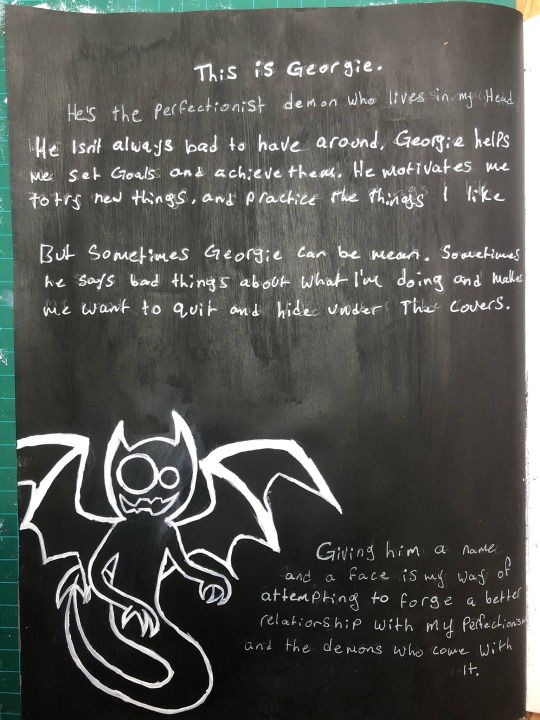 This is Georgie.
He's the perfectionist demon who lives in my Head
He Isn't always bad to have around, Georgie helps
me set Goals and achieve them. He motivates me
to try new things, and practice the things I like
But Sometimes Georgie can be mean. Sometimes
he says bad things about what I'm doing and makes
me want to quit and hide under The covers.
Giving him a name
and a face is my way of
attempting to forge a better
relationship with my Perfectionism
and the demons who come with
It.